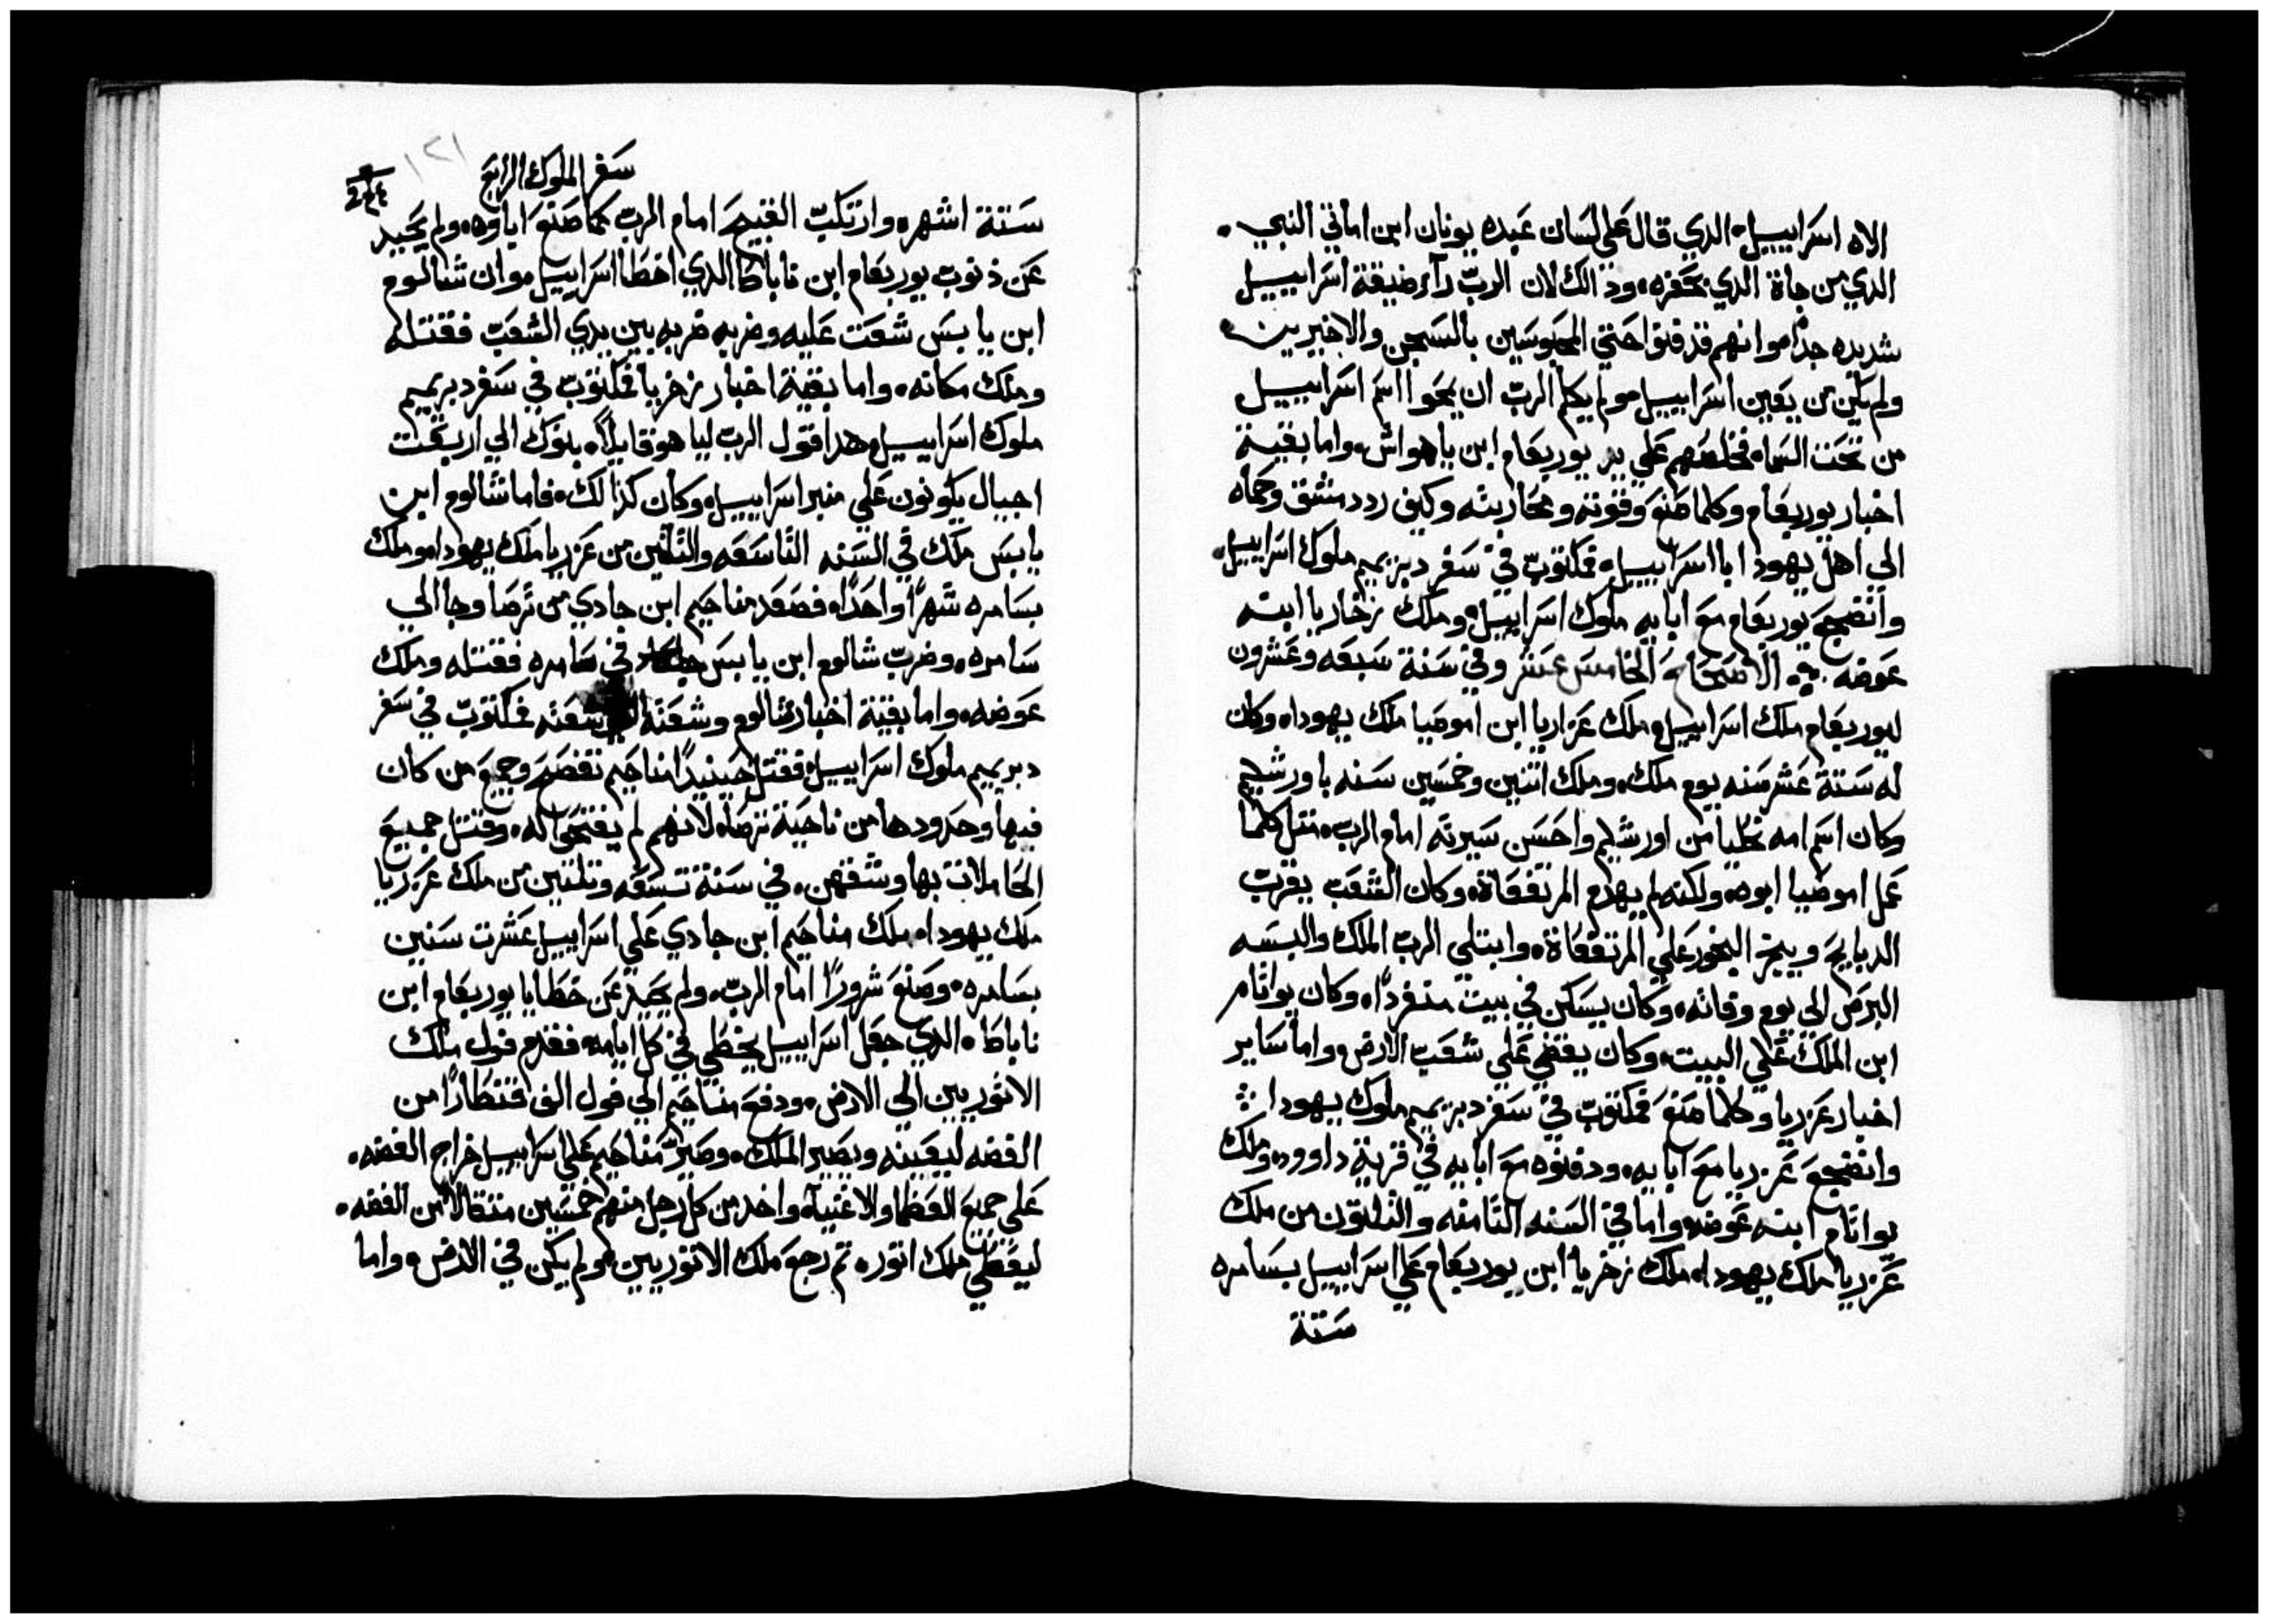 الاه اسرابييل الدي قال علي لسان عبده يونان ابن اماتي النبي
الدي من جاة الدي بحفره ودالك لان الرب رآء ضيقة اسرابييل
شديده جداً وانهم قد فنوا حتي المحبوسين بالسجن والاخيرين
ولم يكن من يعين اسرابييل ولم يكلم الرب ان يمحوا اسم اسرابييل
من تحت السماء فخلصهم علي يد يوربعام ابن ياهواش واما بقية
اخبار يوربعام وكلما صنع وقوته ومحاربته وكيف ردد مشق وحماه
الي اهل يهودا بااسرابييل فمكتوب في سفر دبريميم ملوك اسرابييل
وانضجع يوربعام مع ابايه ملوك اسرابييل وملك زخاريا ابنه
عوضه الاصحاح الخامس عشر وفي سنة سبعه وعشرون
ليوربعام ملك اسرابييل ملك عزاريا ابن اموصيا ملك يهودا وكان
له ستة عشر سنه يوم ملك وملك اتنين وخمسين سنه باورشليم
وكان اسم امه يخليا من اورشليم واحسن سيرته امام الرب متل كلما
عمل اموصيا ابوه ولكنه لم يهدم المرتفعاة وكان الشعب يقرب
الدبايح ويبخر البخور علي المرتفعاة وابتلي الرب الملك والبسه
البرص الي يوم وفاته وكان يسكن في بيت منفرداً وكان يواتام
ابن الملك علي البيت وكان يقضي علي شعب الارض واما ساير
اخبار عزريا وكلما صنع فمكتوب في سفر دبريميم ملوك يهودا
وانضجع عزريا مع ابايه ودفنوه مع ابايه في قرية داوود وملك
يواتام ابنه عوضه واما في السنه التامنه والتلتون من ملك
عزريا ملك يهودا ملك زخريا ابن يوربعام علي اسرابييل بسامره
ستة
سفر الملوك الرابع
١٢١
ستة اشهر وارتكب القبيح امام الرب كما صنع اباوه ولم يحيد
عن ذنوب يوربعام ابن ناباطا الدي اخطا اسرابييل وان شالوم
ابن يابيس شعت عليه وضربه ضربه بين يدي الشعب فقتله
وملك مكانه واما بقية اخبار زخريا فمكتوب في سفر دبريميم
ملوك اسرابييل هدا قول الرب لياهو قايلاً بنوك الي اربعت
اجيال يكونون علي منبر اسرابييل وكان كذالك فاما شالوم ابن
يابيس ملك في السنه التاسعه والتلتين من عزريا ملك يهودا وملك
بسامره شهراً واحداً فصعد مناحيم ابن جادي من ترصا وجا الي
سامره وضرب شالوم ابن يابيس في سامره فقتله وملك
عوضه واما بقية اخبار شالوم وشعته شعته فمكتوب في سفر
دبريميم ملوك اسرابييل فقتل حينيداً مناحيم تفصح وجميع من كان
فيها وحدودها من ناحية ترصاه لانهم لم يفتحوا له وقتل جميع
الحاملات بها وشقهن في سنة تسعه وتلتين من ملك عزريا
ملك يهودا ملك مناحيم ابن جادي علي اسرابييل عشرت سنين
بسامره وصنع شروراً امام الرب ولم يحيد عن خطايا يوربعام ابن
ناباطا الدي جعل اسرابييل يخطي في كل ايامه فقدم فول ملك
الاتوريين الي الارض ودفع مناحيم الي فول الف قنطاراً من
الفضه ليعينه ويصير الملك وصير مناحيم علي اسرابييل خراج الفضه
علي جميع العظما والاغنيآ واخد من كل رجل منهم خمسين متقالاً من الفضه
ليعطي ملك اتور تم رجع ملك الاتوريين ولم يكن في الارض واما